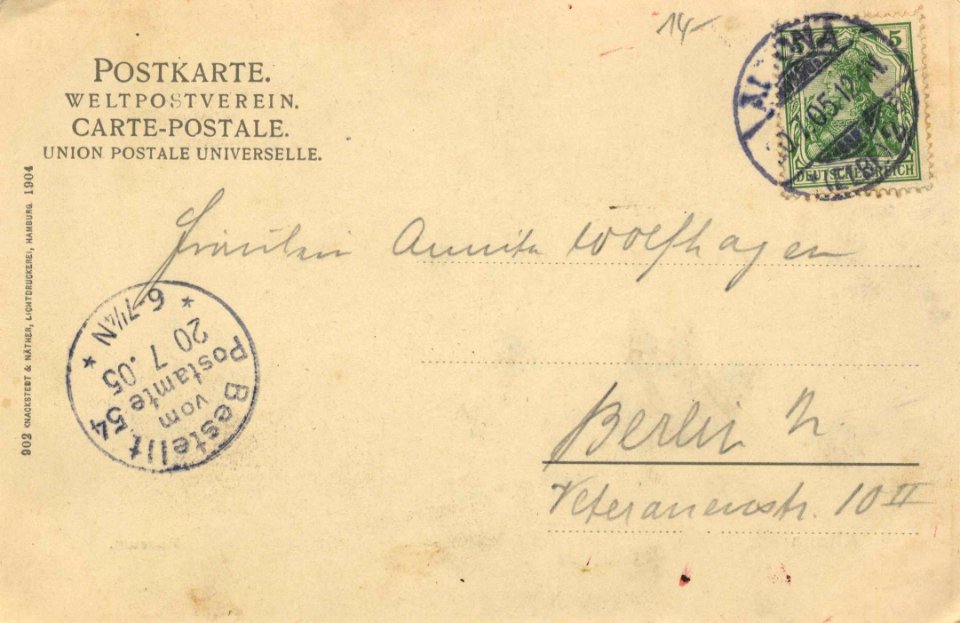 14-
POSTKARTE.
WELTPOSTVEREIN.
CARTE-POSTALE.
UNION POSTALE UNIVERSELLE.
5
DEUTSCHES REICH
ALTONA
05.12-1N
Fräulein Annita Wolfhagen
Berlin N.
Veteranenstr. 10 II
Bestellt
vom
Postamte 54
20 7 .05
* 6-7¼N *
902 KNACKSTEDT & NÄTHER, LICHTDRUCKEREI, HAMBURG 1904